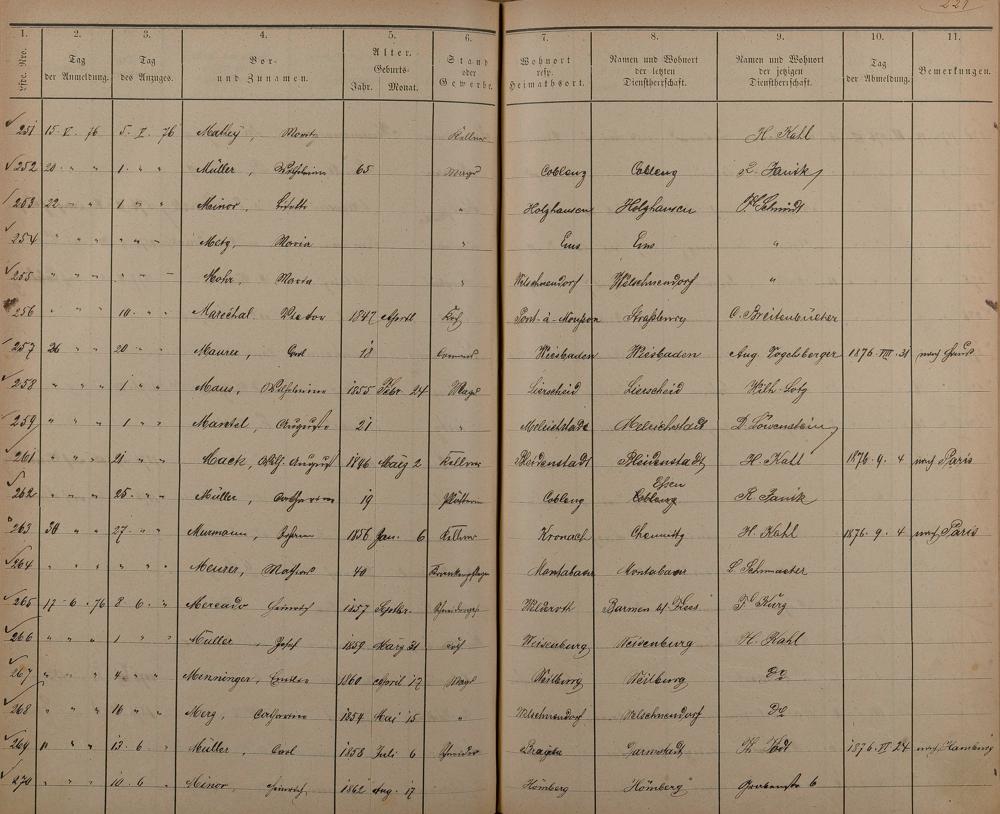 221
1. 2. 3. 4. 5. 6. 7. 8. 9. 10. 11.
Lfde. Nro. Tag der Anmeldung. Tag des Anzuges. Vor- und Zunamen. Alter. Geburts- Jahr. Monat. Stand oder Gewerbe. Wohnort resp. Heimathsort. Namen und Wohnort der letzten Dienstherrschaft. Namen und Wohnort der jetzigen Dienstherrschaft. Tag der Abmeldung. Bemerkungen.
251 15. V. 76 5. V. 76 Mathey, Moritz Kellner H. Kahl
252 20 " " 1. " " Müller, Wilhelmine 65 Magd Coblenz Coblenz L. Janik
253 22 " " 1 " " Minor, " Holzhausen Holzhausen Schmidt
254 " " " " " " Metz, Maria " Ems Ems "
255 " " " " " " Mohr, Maria " Welschneudorf Welschneudorf "
256 " " " 10. " " Maréchal, Victor 1847 April Koch Pont-à-Mousson Straßburg C. Breitenbücher
257 26 " " 20 " " Maurer, Carl 18 Wiesbaden Wiesbaden Aug. Vogelsberger 1876 VIII 31 nach
258 " " " 1 " " Maus, Wilhelmine 1855 Febr. 24 Magd Lierscheid Lierscheid Wilh. Lotz
259 " " " 1 " " Mantel, Auguste 21 " Melrichstadt D. Löwenstein
261 " " " 21 " " Mack, Wilh. August 1846 März 2 Kellner Bleidenstadt Bleidenstadt H. Kahl 1876. 9. 4 nach Paris
262 " " " 25. " " Müller, Catharina 19 Coblenz Coblenz Essen R. Janik
263 30 " " 27. " " Murmann, Johann 1856 Jan. 6 Kellner Kronach Chemnitz H. Kahl 1876. 9. 4 nach Paris
264 " " " " " " Meurer, 40 Krankenpfleger Montabaur Montabaur L. Schmacter
265 17. 6. 76 8 6. " Mercado Heinrich 1857 Septbr. Barmen
266 " " " 1 " " Müller, Josef 1859 März 31 Koch Weisenburg Weisenburg H. Kahl
267 " " " 4 " " Menninger, 1860 April 17 Magd Weilburg Weilburg Do
268 " " " 16 " " Merz, Catharina 1854 Mai 15 " Welschneudorf Welschneudorf Do
269 " " " 13. 6 " Müller, Carl 1858 Juli 6 Schneider Darmstadt 1876 VI 24 nach Hamburg
270 " " " 10. 6 " Minor, Heinrich 1862 Aug. 17 Hömberg Hömberg Grabenstr. 6